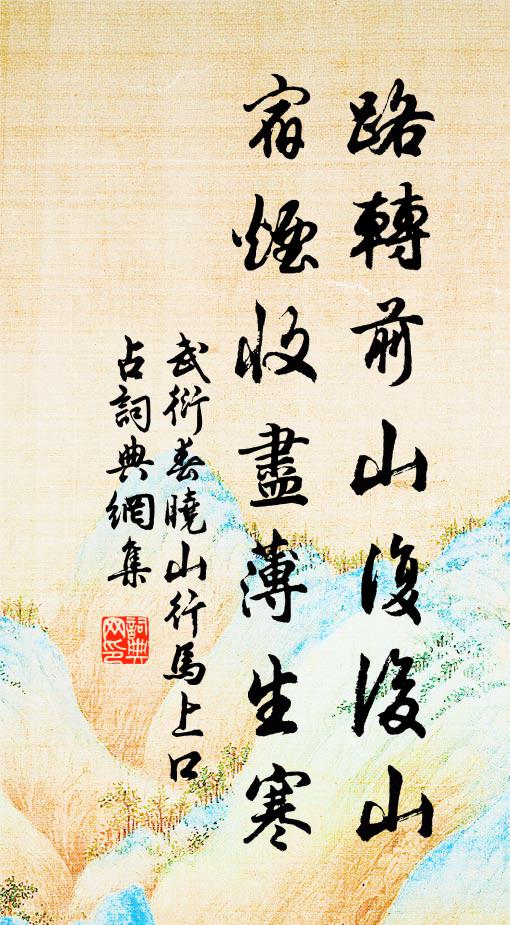 路轉前山復後山
宿煙收盡薄生寒
武衍春曉山行馬上口
占詞典網集
詞典
网印